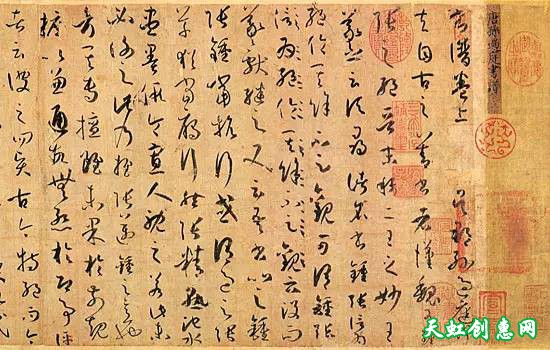 唐孫過庭書譜
書譜卷上 吳郡孫過庭
夫自古之善書者漢魏有鍾
張之絕晉末稱二王之妙王
羲之云頃尋諸名書鍾張信為
絕倫其餘不足觀可謂鍾張
信為絕倫其餘不足觀云沒而
羲獻繼之又云吾書比之鍾
張鍾當抗行或謂過之張
草猶當鴈行然張精熟池水
盡墨假令寡人耽之若此未
必謝之此乃推張邁鍾之意也
考其專擅雖未果於前規
摭以兼通故無慚於即事評
者云彼之四賢古今特絕而今
天虹创意网